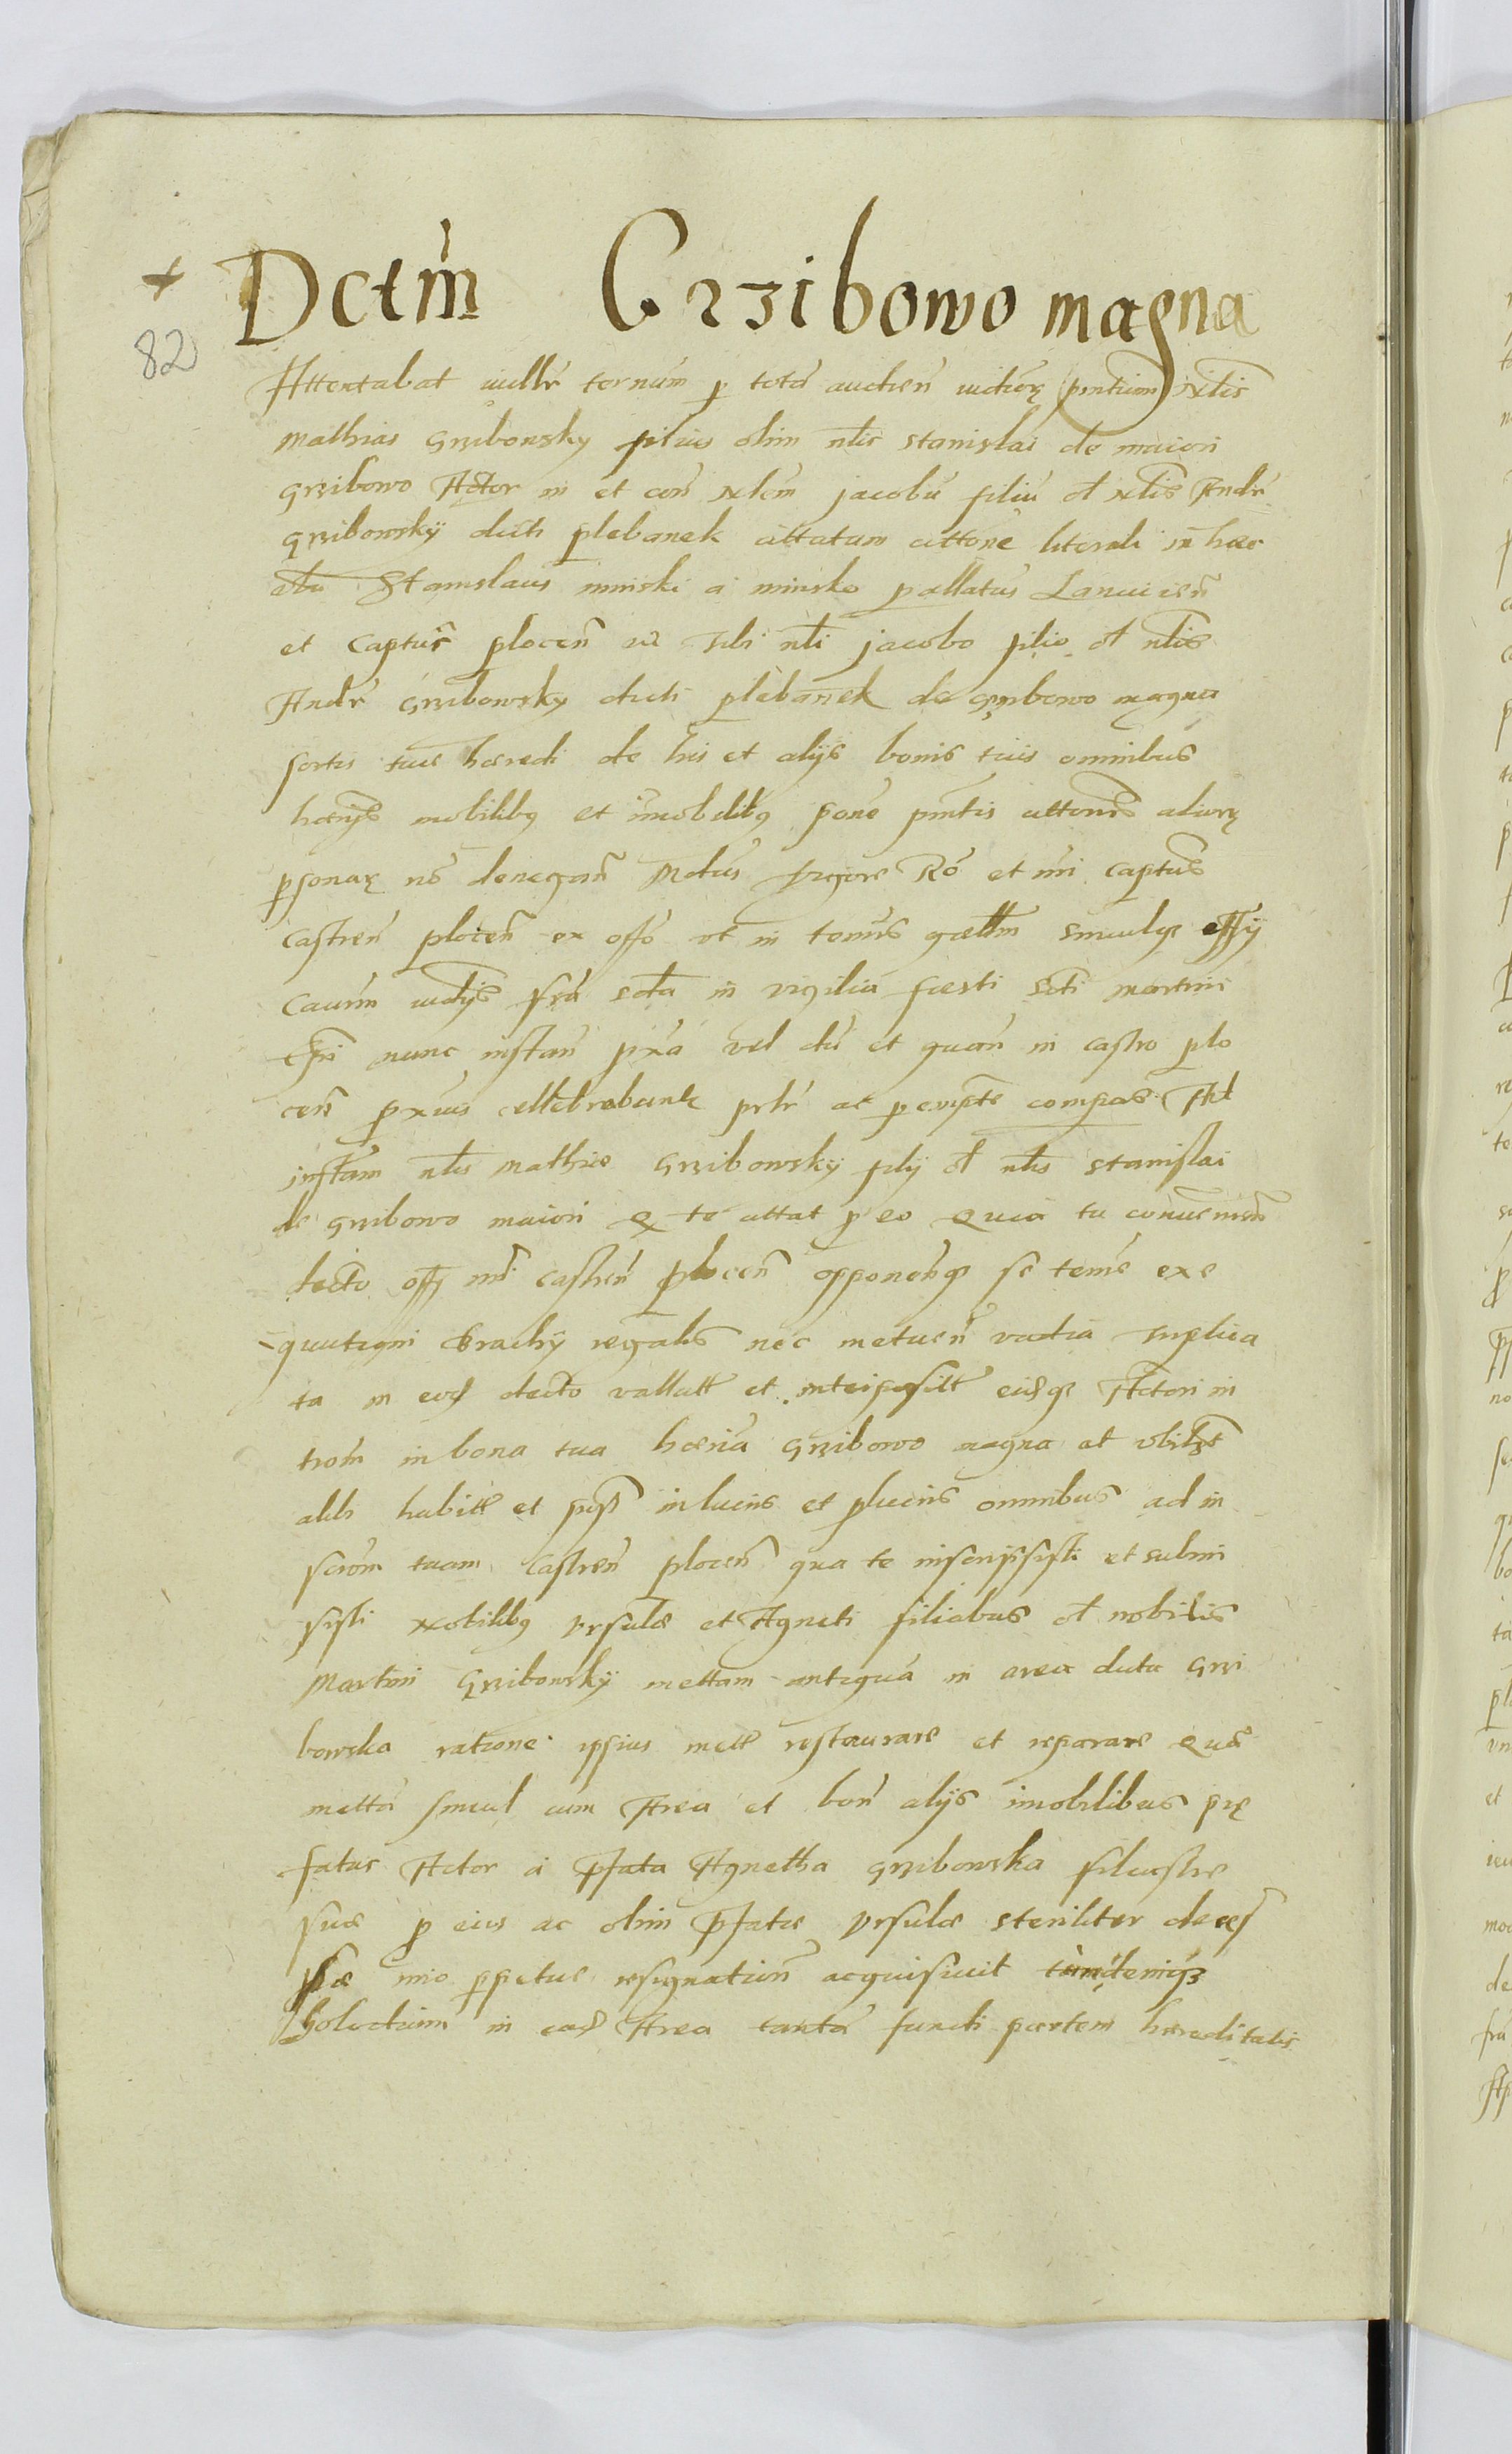 Dctm̃ Grzibowo magna
82
Attentabat iudlr̃ ternũm p totã audien̄ iudior̨ pntium Nlis
Mathias Grzibowsky filius olim nlis Stanislai de maiori
Grzibowo Actor in et con̄ Nlem Jacobũ filiũ ol Nlis Andr̃
Grzibowskÿ dicti plebanek cittatum cittone literali in haec
Stanislaus minski a minsko pallatus Lanciciẽn
et Capturs plocen̄ tibi nli Jacobo filio ol nlis
Andr̃ Grzibowsky dicti plebanek de Grzibowo magna
sortis tuae haeredi de his et alijs bonis tuis omnibus
haerijs mobilibg et imobilibg pone pntis cittonis aliorg
psonar̨ nõ denegan̄ Motus vigore Rõ et mi captus
Castren̄ plocen̄ ex offõ vt in termis simulq offÿ
Caurũm iudijs frã scda in vigilia faesti Scti Martini
Epi nunc instan̄ pxã vel dũ et quan̄ in castro plo
cen̄ pxius cellebrabunt prlr̃ ac pempte compas Ad
instam nlis Mathiae Grzibowskÿ filÿ ol nlis Stanislai
de Grzibowo maiori q te cittat p eo Quia tu
decto offÿ mi castren̄ plocen̄ opponensq se temẽ exe
qũutioni Brachÿ regalis nec metuen̄ vadia triplica
ta in eod decto vallatt et interposite eidq Actori in
trom̃ in bona tua haeria Grzibowo magna at vbilzt
alib habite et poss in lucris et plucris omnibus ad in
scrom̃ tuam Castren̄ plocen̄ qua te inscripsisti et submi
sisti Nobilibg Vrsulae et Agneti filiabus ol nobilis
Martini Grzibowskÿ mettam antiquã in area dicta Grzi
bowska ratione ipsius mette restaurare et reparare Quã
mettã simul cum Area et bon̄ alijs imobilibus prę
fatus Actor a pfata Agnetha Grzibowska filiastre
suae p eius ac olim pfatae Vrsulae steriliter decess
sae mio ppetuae resignation̄ acquisiuit tandemq3
in ead Area tantã fundi partem haereditatis